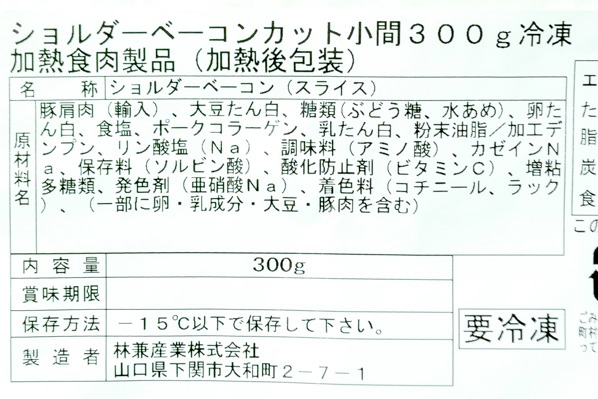 ショルダーベーコンカット小間３００ｇ冷凍
加熱食肉製品（加熱後包装）
名称 ショルダーベーコン（スライス）
原材料名
豚肩肉（輸入）、大豆たん白、糖類（ぶどう糖、水あめ）、卵た
ん白、食塩、ポークコラーゲン、乳たん白、粉末油脂／加工デ
ンプン、リン酸塩（Ｎａ）、調味料（アミノ酸）、カゼインＮ
ａ、保存料（ソルビン酸）、酸化防止剤（ビタミンＣ）、増粘
多糖類、発色剤（亜硝酸Ｎａ）、着色料（コチニール、ラック
）、（一部に卵・乳成分・大豆・豚肉を含む）
内容量 300g
賞味期限
保存方法 －１５℃以下で保存して下さい。
製造者 林兼産業株式会社
山口県下関市大和町２－７－１
要冷凍
エ
た
脂
炭
食
この